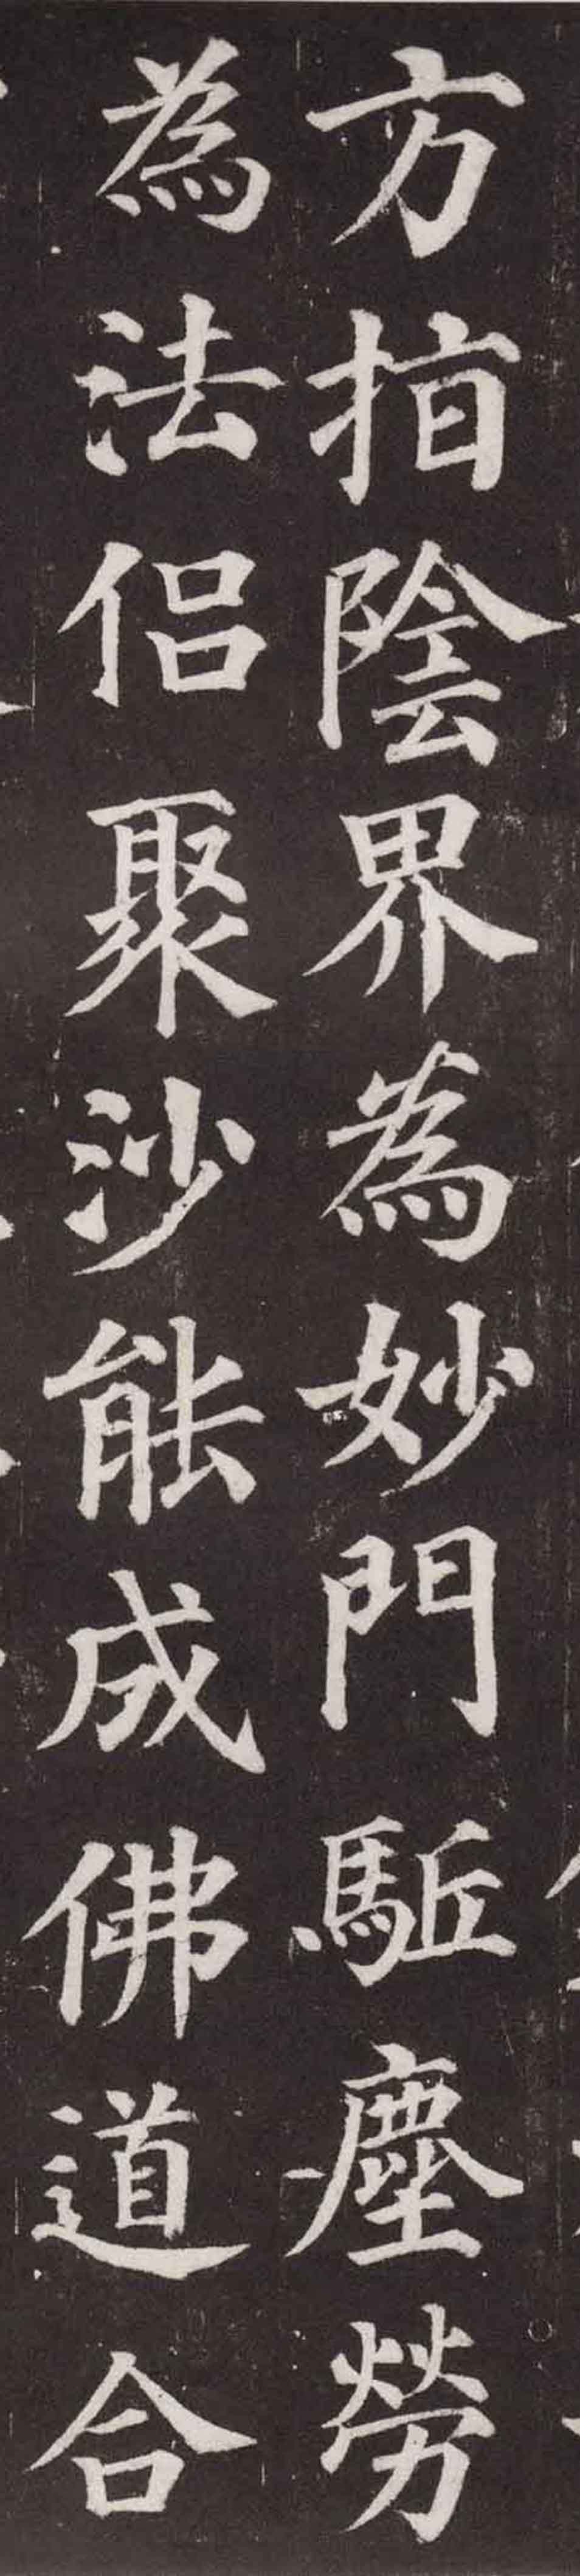 方指陰界為妙門駈塵勞
為法侣聚沙能成佛道合